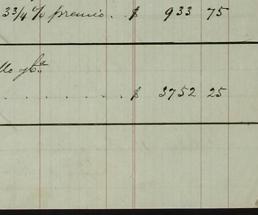 33/4 % premio . . $ 933 75
llo y Ca
. . . . . . . . . $ 3752 25